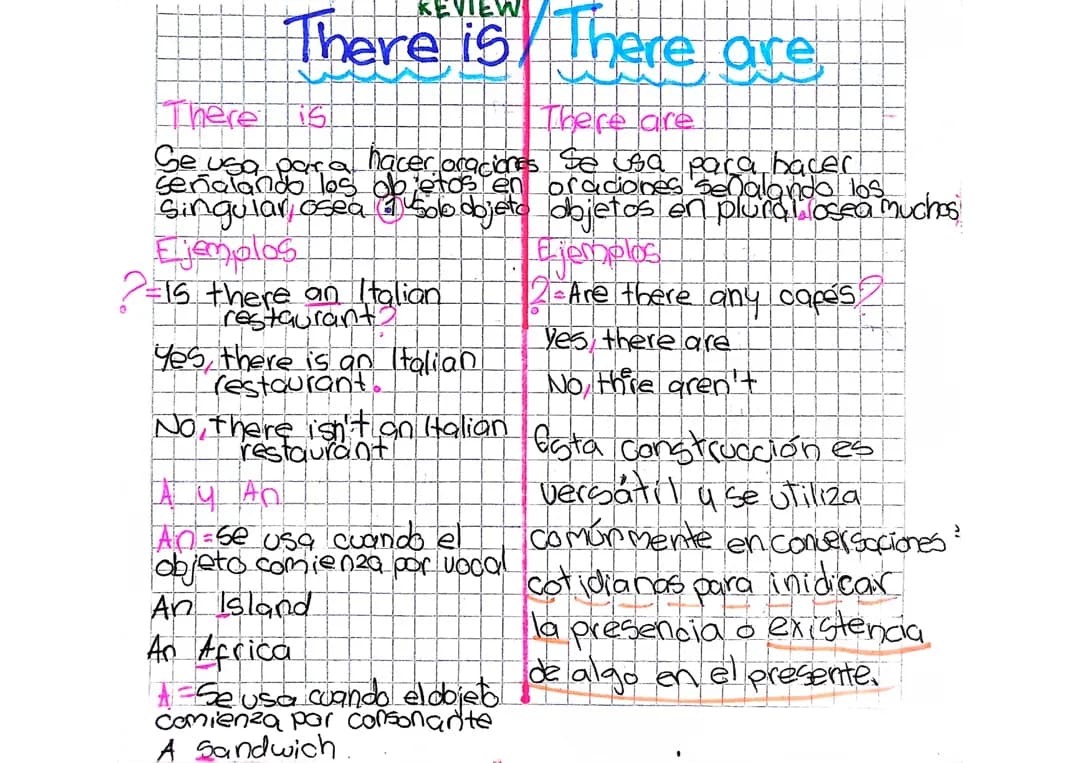 REVIEW
There is / There are
There is
Se usa para hacer oraciones
señalando los objetos en
singular, osea 1 solo objeto
Ejemplos
?=Is there an Italian
restaurant?
Yes, there is an Italian
restaurant.
No, there isn't an Italian
restaurant
A y An
An=Se usa cuando el
objeto comienza por vocal
An Island
An Africa
A=Se usa cuando el objeto
comienza por consonante
A Sandwich.
There are
Se usa para hacer
oraciones señalando los
objetos en plural, osea muchos
Ejemplos
?=Are there any capés?
Yes, there are
No, thre aren't
Esta construcción es
versátil y se utiliza
comúnmente en conversaciones
cotidianas para inidicar
la presencia o existencia
de algo en el presente.